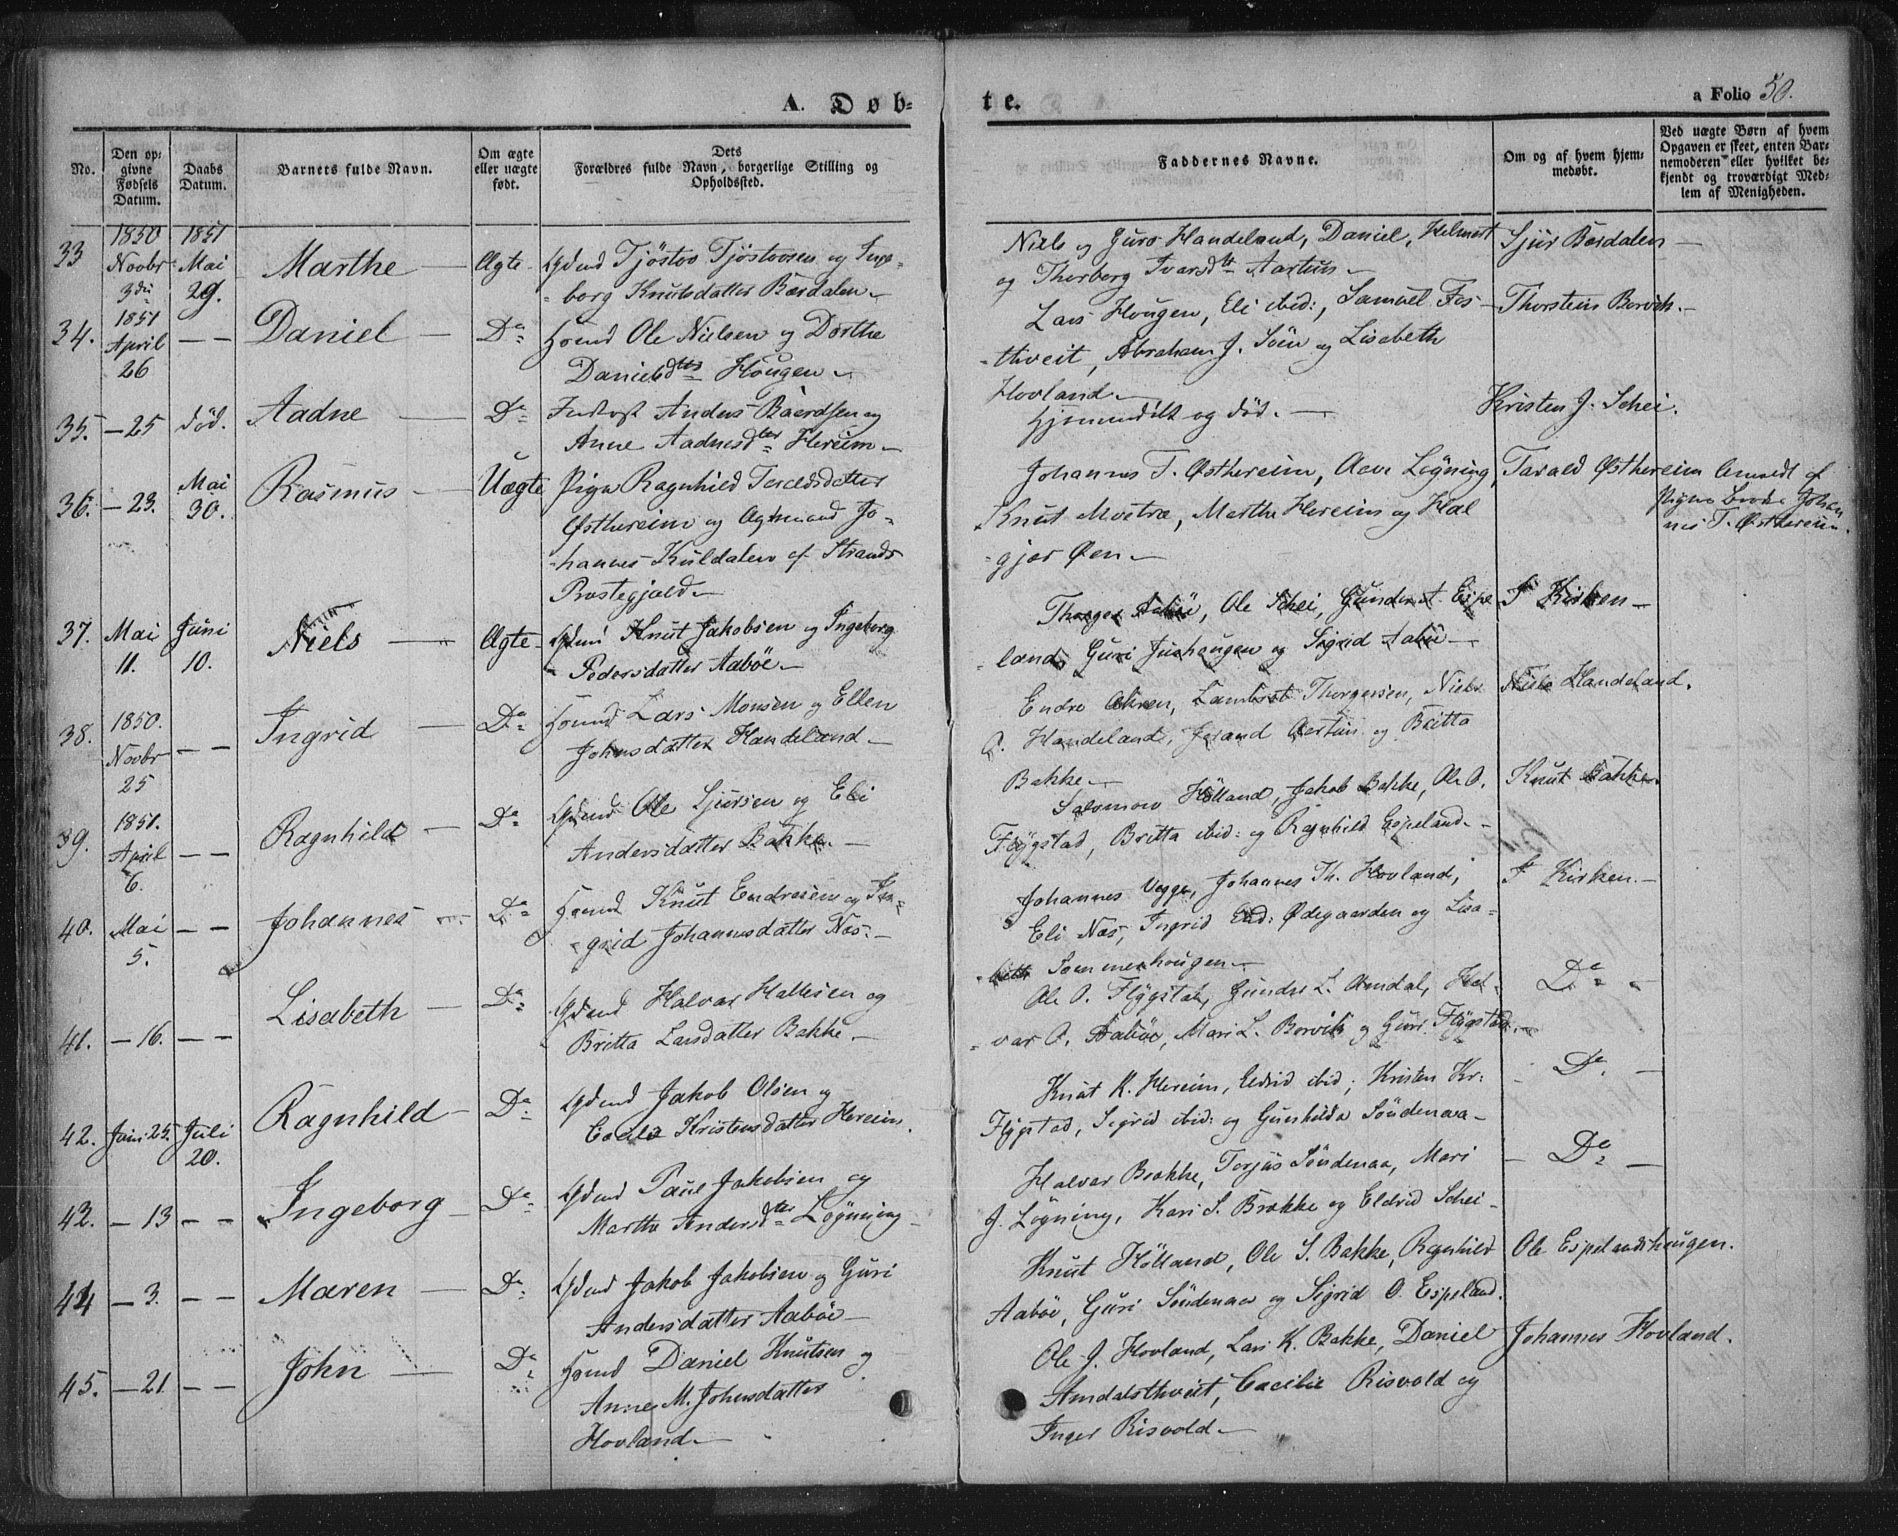 A. Døb=
te.
a Folio 50.
No.
Den op=
givne
Fødsels
Datum.
Daabs
Datum.
Barnets fulde Navn.
Om ægte
eller uægte
født.
Dets
Forældres fulde Navn, borgerlige Stilling og
Opholdssted.
Faddernes Navne.
Om og af hvem hjem=
medøbt.
Ved uægte Børn af hvem
Opgaven er skeet, enten Bar=
nemoderen eller hvilket be=
kjendt og troværdigt Med=
lem af Menigheden.
33
1850
Novbr
3die
1851
Mai
29.
Marthe —
Ægte
Gdmd Tjöstov Tjöstovsen og Inge-
borg Knutsdatter Bærdalen —
Niels og Guro Handeland, Daniel, Helmert
og Thorborg Ivarsdtr Aartun —
Sjur Bærdalen —
34.
1851
April
26
— —
Daniel —
Do
Hsmd Ole Nielsen og Dorthe
Danielsdtr Hougen —
Lars Hougen, Eli ibid:, Samuel Fos-
thveit, Abraham J. Söin og Lisabeth
Hovland —
Thorstein Borvik. —
35.
— 25
død.
Aadne —
Do
Anders Baerdsen og
Anne Aadnesdter Hereim —
Hjemmedöbt og död. —
Kristen J. Schei.
36.
— 23.
Mai
30.
Rasmus —
Uægte
Pige Ragnhild Taraldsdatter
Østhereim og Ogmund Jo-
hannes Kuldalen af Strands
Præstegjæld —
Johannes T. Østhereim, Aave Løyning,
Knut Mostræ, Marthe Hereim og Hal
gjer Øen —
Tarald Østhereim
Anmeldt af
Pigens broder Johan
nes T. Østhereim.
37.
Mai
11.
Juni
10.
Niels —
Ægte
Gdmd Knut Jakobsen og Ingeborg
Pedersdatter Aaböe —
Thorger, Ole Schei, Gunder A. Espe
land, Guri Juvhaugen og Sigrid Aabö —
I Kirken —
38.
1850.
Novbr
25
— —
Ingrid —
Do
Hsmd Lars Monsen og Ellen
Johnsdatter Handeland —
Endre Ahren, Lambret Thorgersen, Niels
O. Handeland, Jorand Aartun og Britta
Bakke —
Niels Handeland.
39.
1851.
April
6.
— —
Ragnhild —
Do
Gdmd Ole Sjursen og Eli
Andersdatter Bakke. —
Salomon Hölland, Jakob Bakke, Ole O.
Fløgstad, Britta ibid: og Ragnhild Espeland. —
Knut Bakke.
40.
Mai
5.
— —
Johannes —
Do
Hsmd Knut Endresen og In-
grid Johannesdatter Næs. —
Johannes Vegge, Johannes Th. Hovland,
Eli Næs, Ingrid Ødegaarden og Lisa-
beth Sommerhougen —
I Kirken. —
41.
— 16.
— —
Lisabeth —
Do
Gdmd Halvar Hallesen og
Britta Larsdatter Bakke. —
Ole O. Fløgstad, Gunder L. Amdal, Hal-
var O. Aaböe, Mari L. Borvik og Guri Fløgstad. —
Do —
42.
Juni 25.
Juli
20.
Ragnhild —
Do
Gdmd Jakob Olsen og
Kristensdatter Hereim.
Knut K. Hereim, Eldrid ibid; Kristen Kr.
Fløgstad, Sigrid ibid: og Gunhilda Söndenaa —
— Do —
43.
— 13
— —
Ingeborg —
Do
Gdmd Paul Jakobsen og
Martha Andersdtr Løyning —
Halvar Brokke, Torjus Söndenaa, Mari
J. Løyning, Kari S. Brokke og Eldrid Schei —
— Do —
44
— 3.
— —
Maren —
Do
Gdmd Jakob Jakobsen og Guri
Andersdatter Aaböe —
Knut Hölland, Ole S. Bakke, Ragnhild
Aaböe, Guri Söndenaa og Sigrid O. Espeland.
Ole Espelandshaugen.
45.
— 21.
— —
John —
Do
Hsmd Daniel Knutsen og
Anne M. Johnsdatter
Hovland —
Ole J. Hovland, Lars K. Bakke, Daniel
Amdalsthveit, Cæcilie Risvold og
Inger Risvold —
Johannes Hovland.